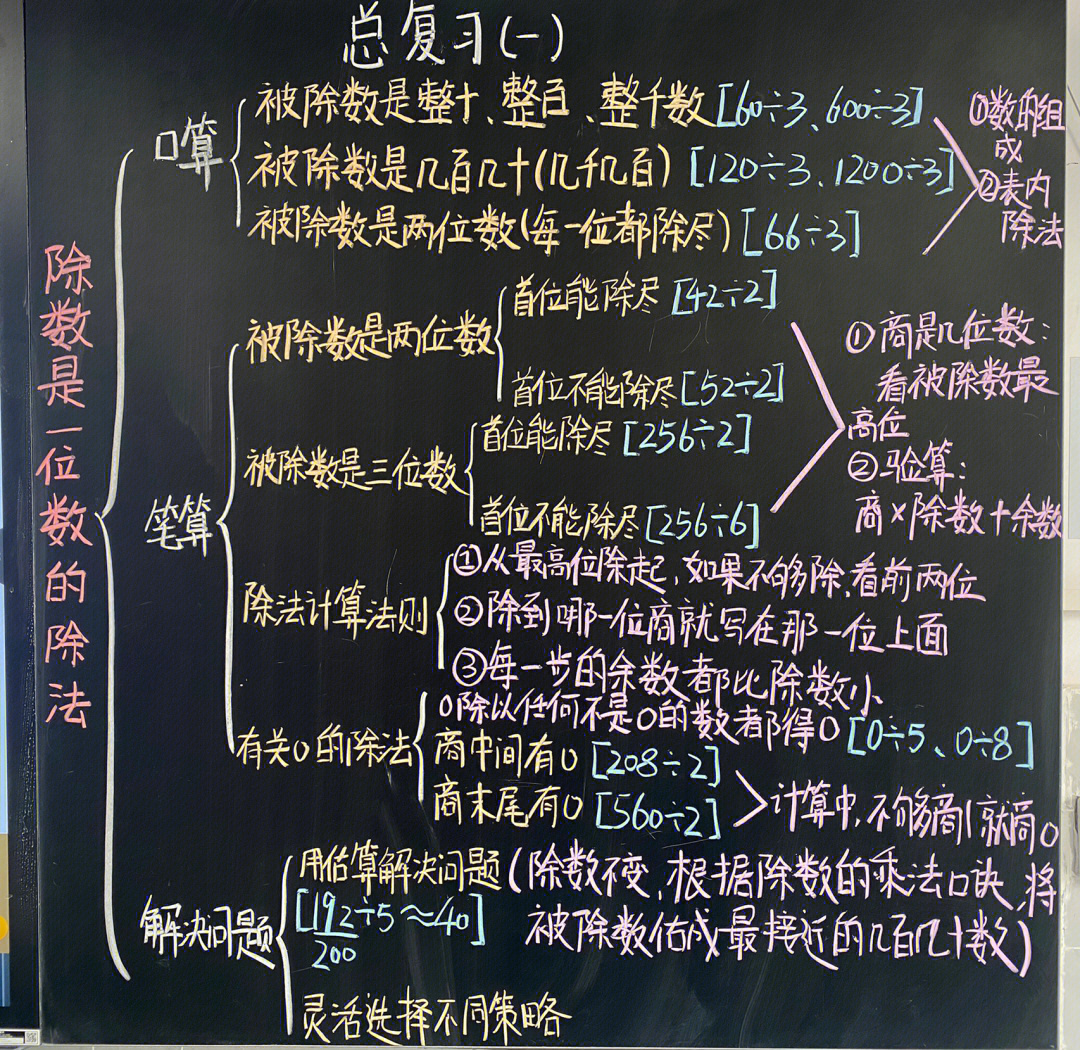 总复习(一)
除数是一位数的除法
口算
被除数是整十、整百、整千数[60÷3、600÷3]
被除数是几百几十(几千几百)[120÷3、1200÷3]
被除数是两位数(每一位都除尽)[66÷3]
①数的组
成
②表内
除法
笔算
被除数是两位数
首位能除尽[42÷2]
首位不能除尽[52÷2]
被除数是三位数
首位能除尽[256÷2]
首位不能除尽[256÷6]
①商是几位数:
看被除数最
高位
②验算:
商×除数+余数
除法计算法则
①从最高位除起,如果不够除,看前两位
②除到哪一位商就写在那一位上面
③每一步的余数都比除数小
有关0的除法
0除以任何不是0的数都得0[0÷5、0÷8]
商中间有0[208÷2]
商末尾有0[560÷2]
计算中,不够商1就商0
解决问题
用估算解决问题(除数不变,根据除数的乘法口诀,将
被除数估成最接近的几百几十数)
[192÷5≈40]
200
灵活选择不同策略